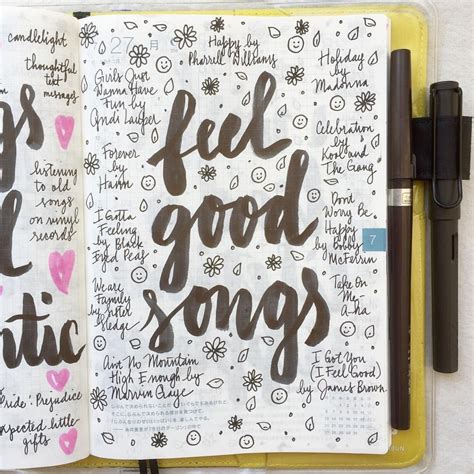 candlelight
thoughtful
text
messages
gs
listening
to old
songs
on vinyl
records
l
ntic
ride & Prejudice
expected little
gifts
27 月
Happy by
Pharrell Williams
Girls Just
Wanna Have
Fun by
Cyndi Lauper
Forever
by
Haim
I Gotta
Feeling
by Black
Eyed Peas
We are
Family
by Sister
Sledge
Ain't No Mountain
High Enough by
Marvin Gaye
feel
good
songs
Holiday
by
Madonna
Celebration
by
Kool and
The Gang
Don't
Worry Be
Happy
by Bobby
McFerrin
7
Take On
Me -
A-ha
I Got You
(I Feel Good)
by James Brown